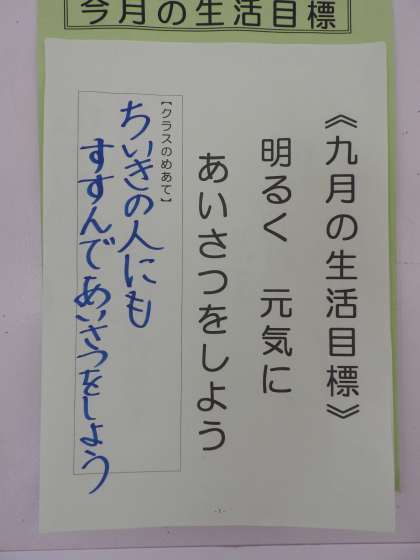 今月の生活目標
《九月の生活目標》
明るく　元気に
あいさつをしよう
【クラスのめあて】
ちいきの人にも
すすんであいさつをしよう
- 1 -